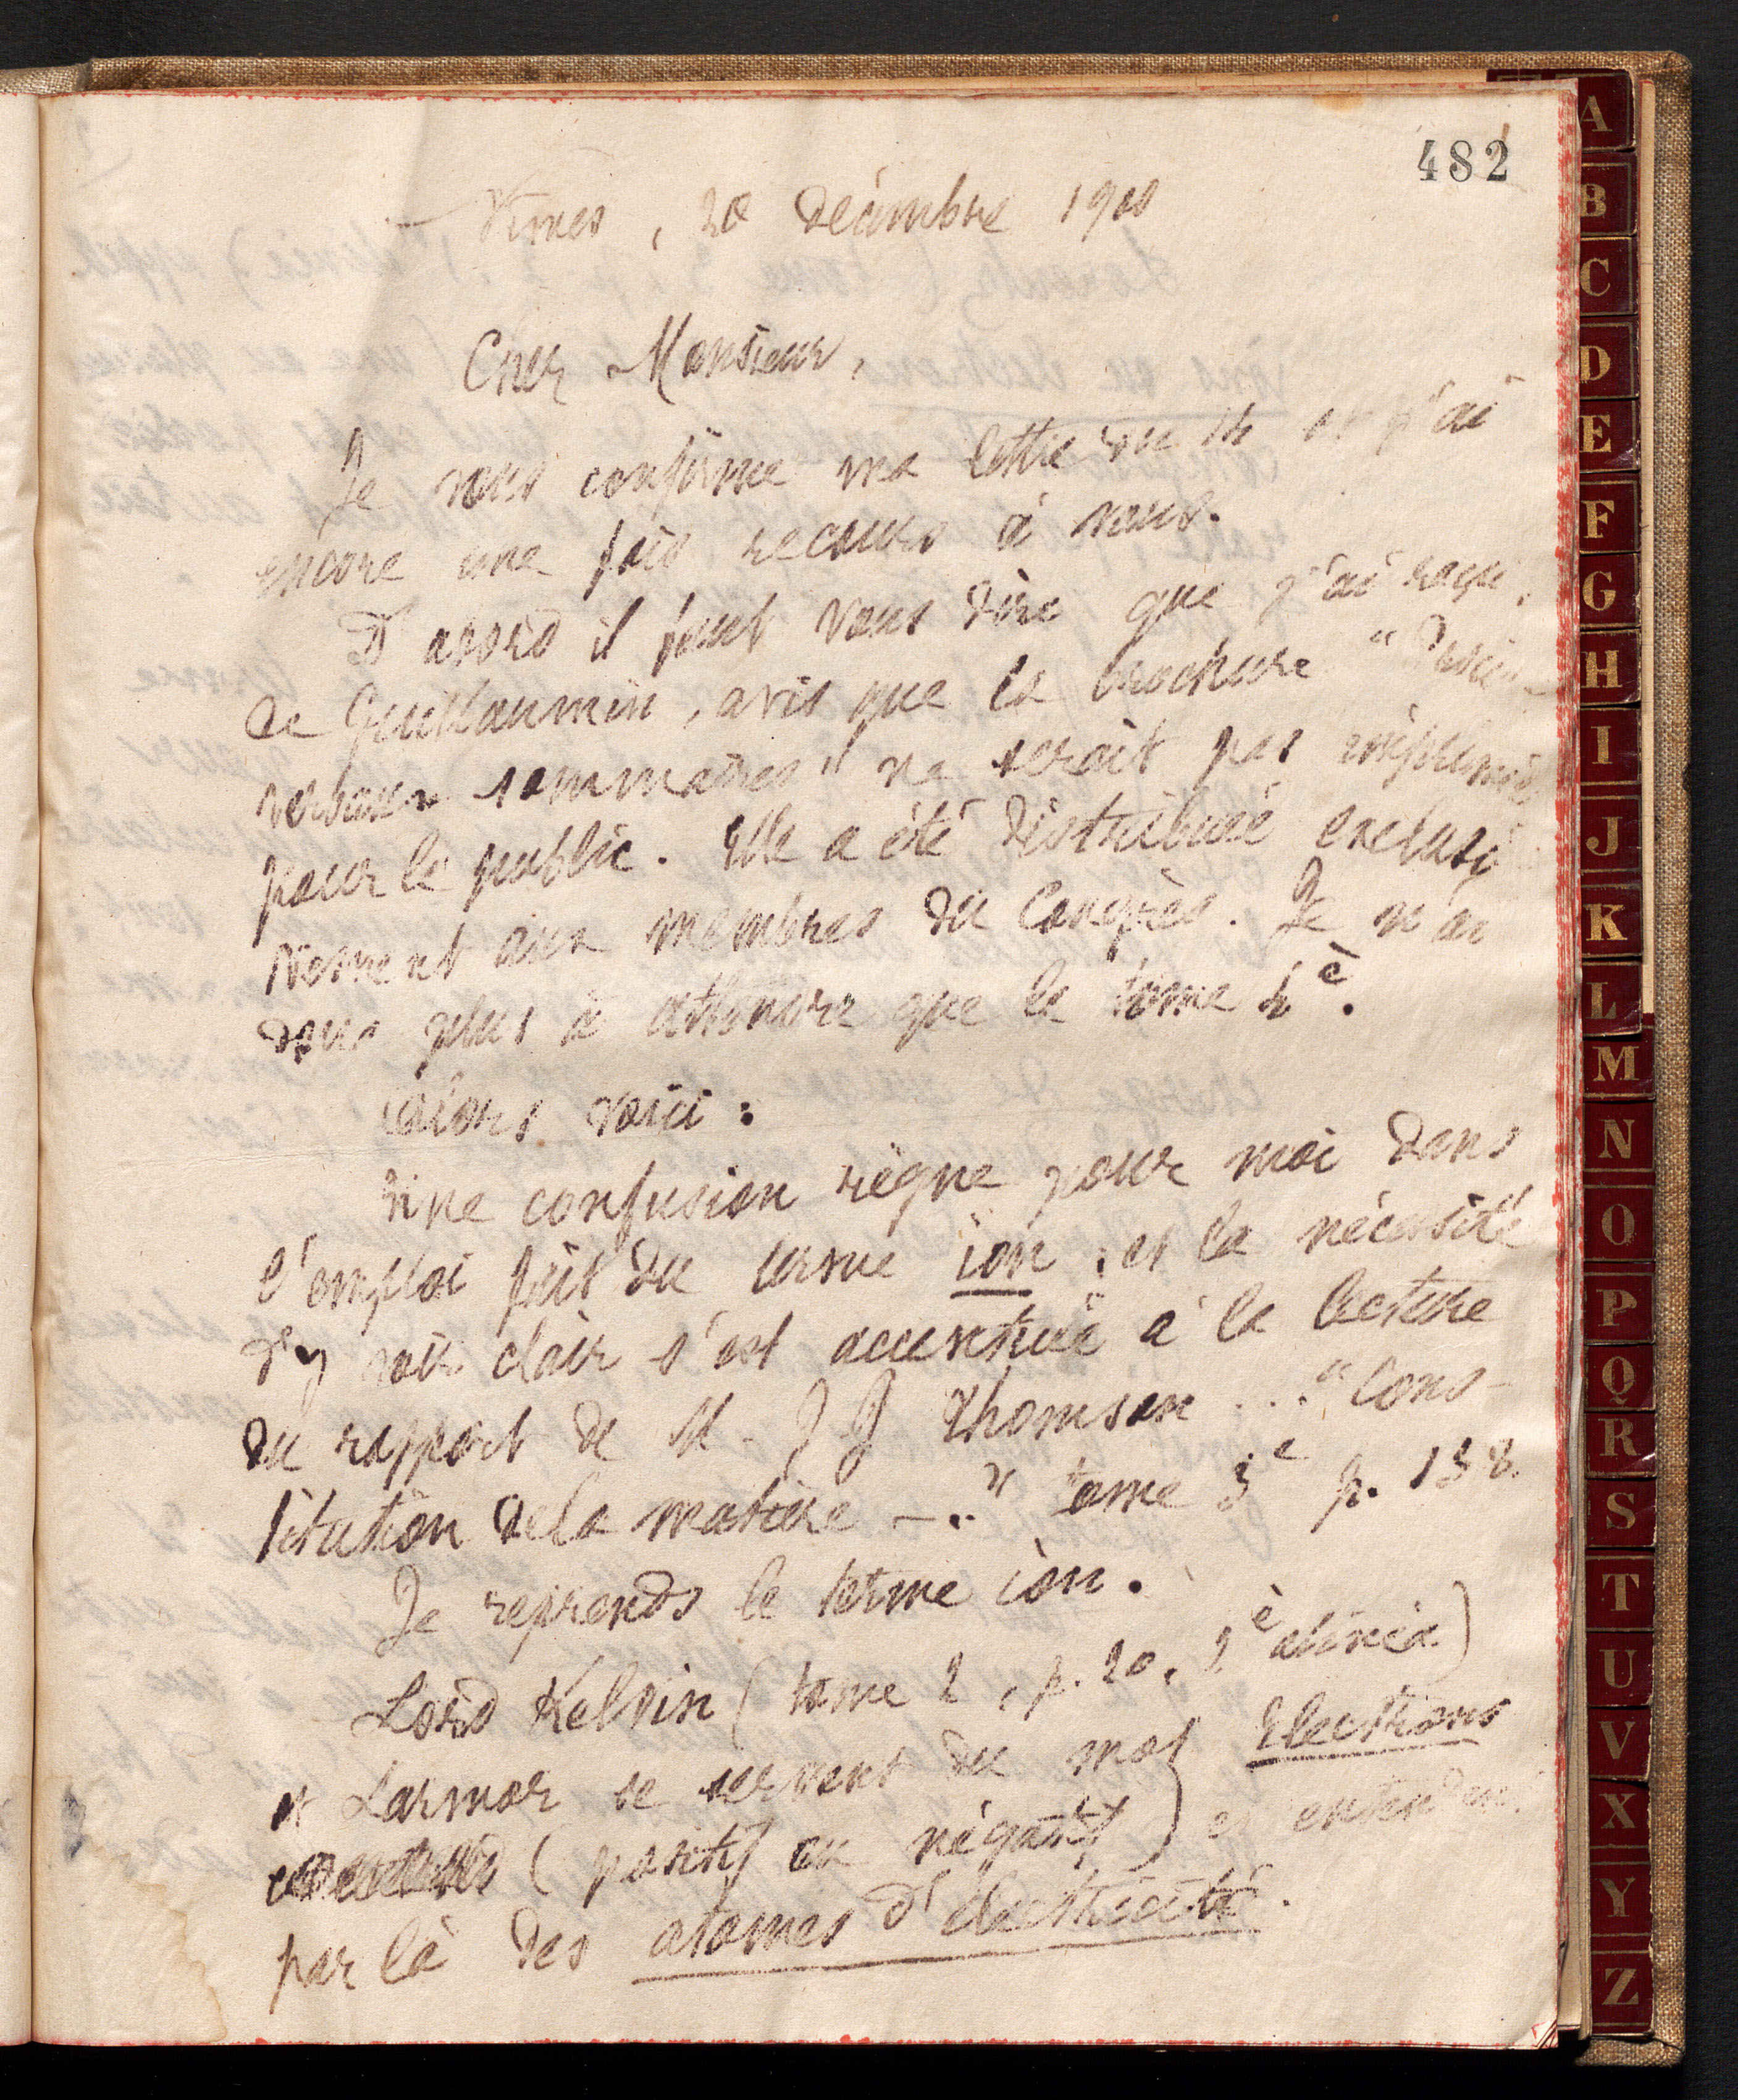 482
Nimes, 20 décembre 1900
Cher Monsieur,
Je vous confirme ma lettre du 14 et j'ai
encore une fois recours à vous.
D'abord il faut vous dire que j'ai reçu,
de Guillaumin, avis que la brochure "
verbaux sommaires" ne serait pas imprimée
pour le public. Elle a été distribuée exclusi
vement aux membres du Congrès. Je n'ai
donc plus à attendre que le tome 4è.
Alors voici :
Une confusion règne pour moi dans
l'emploi fait du terme ion ; et la nécessité
d'y voir clair s'est accentuée à la lecture
du rapport de M. J J Thomson ... "Cons-
titution de la matière ..." tome 3e p. 138.
Je reprends le terme ion.
Lord Kelvin (tome 2, p. 20, 2è alinéa)
et Larmor se servent du mot Electrions
(positif ou négatif) et entendent
par là des atomes d'électricité.
A
B
C
D
E
F
G
H
I
J
K
L
M
N
O
P
Q
R
S
T
U
V
X
Y
Z